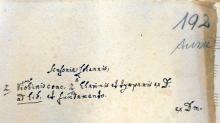 192
Sinfonia
2 Violinis conc. 2 Clarinis et tympanis ex D.
ad lib. et fundamento.
ex Dm.